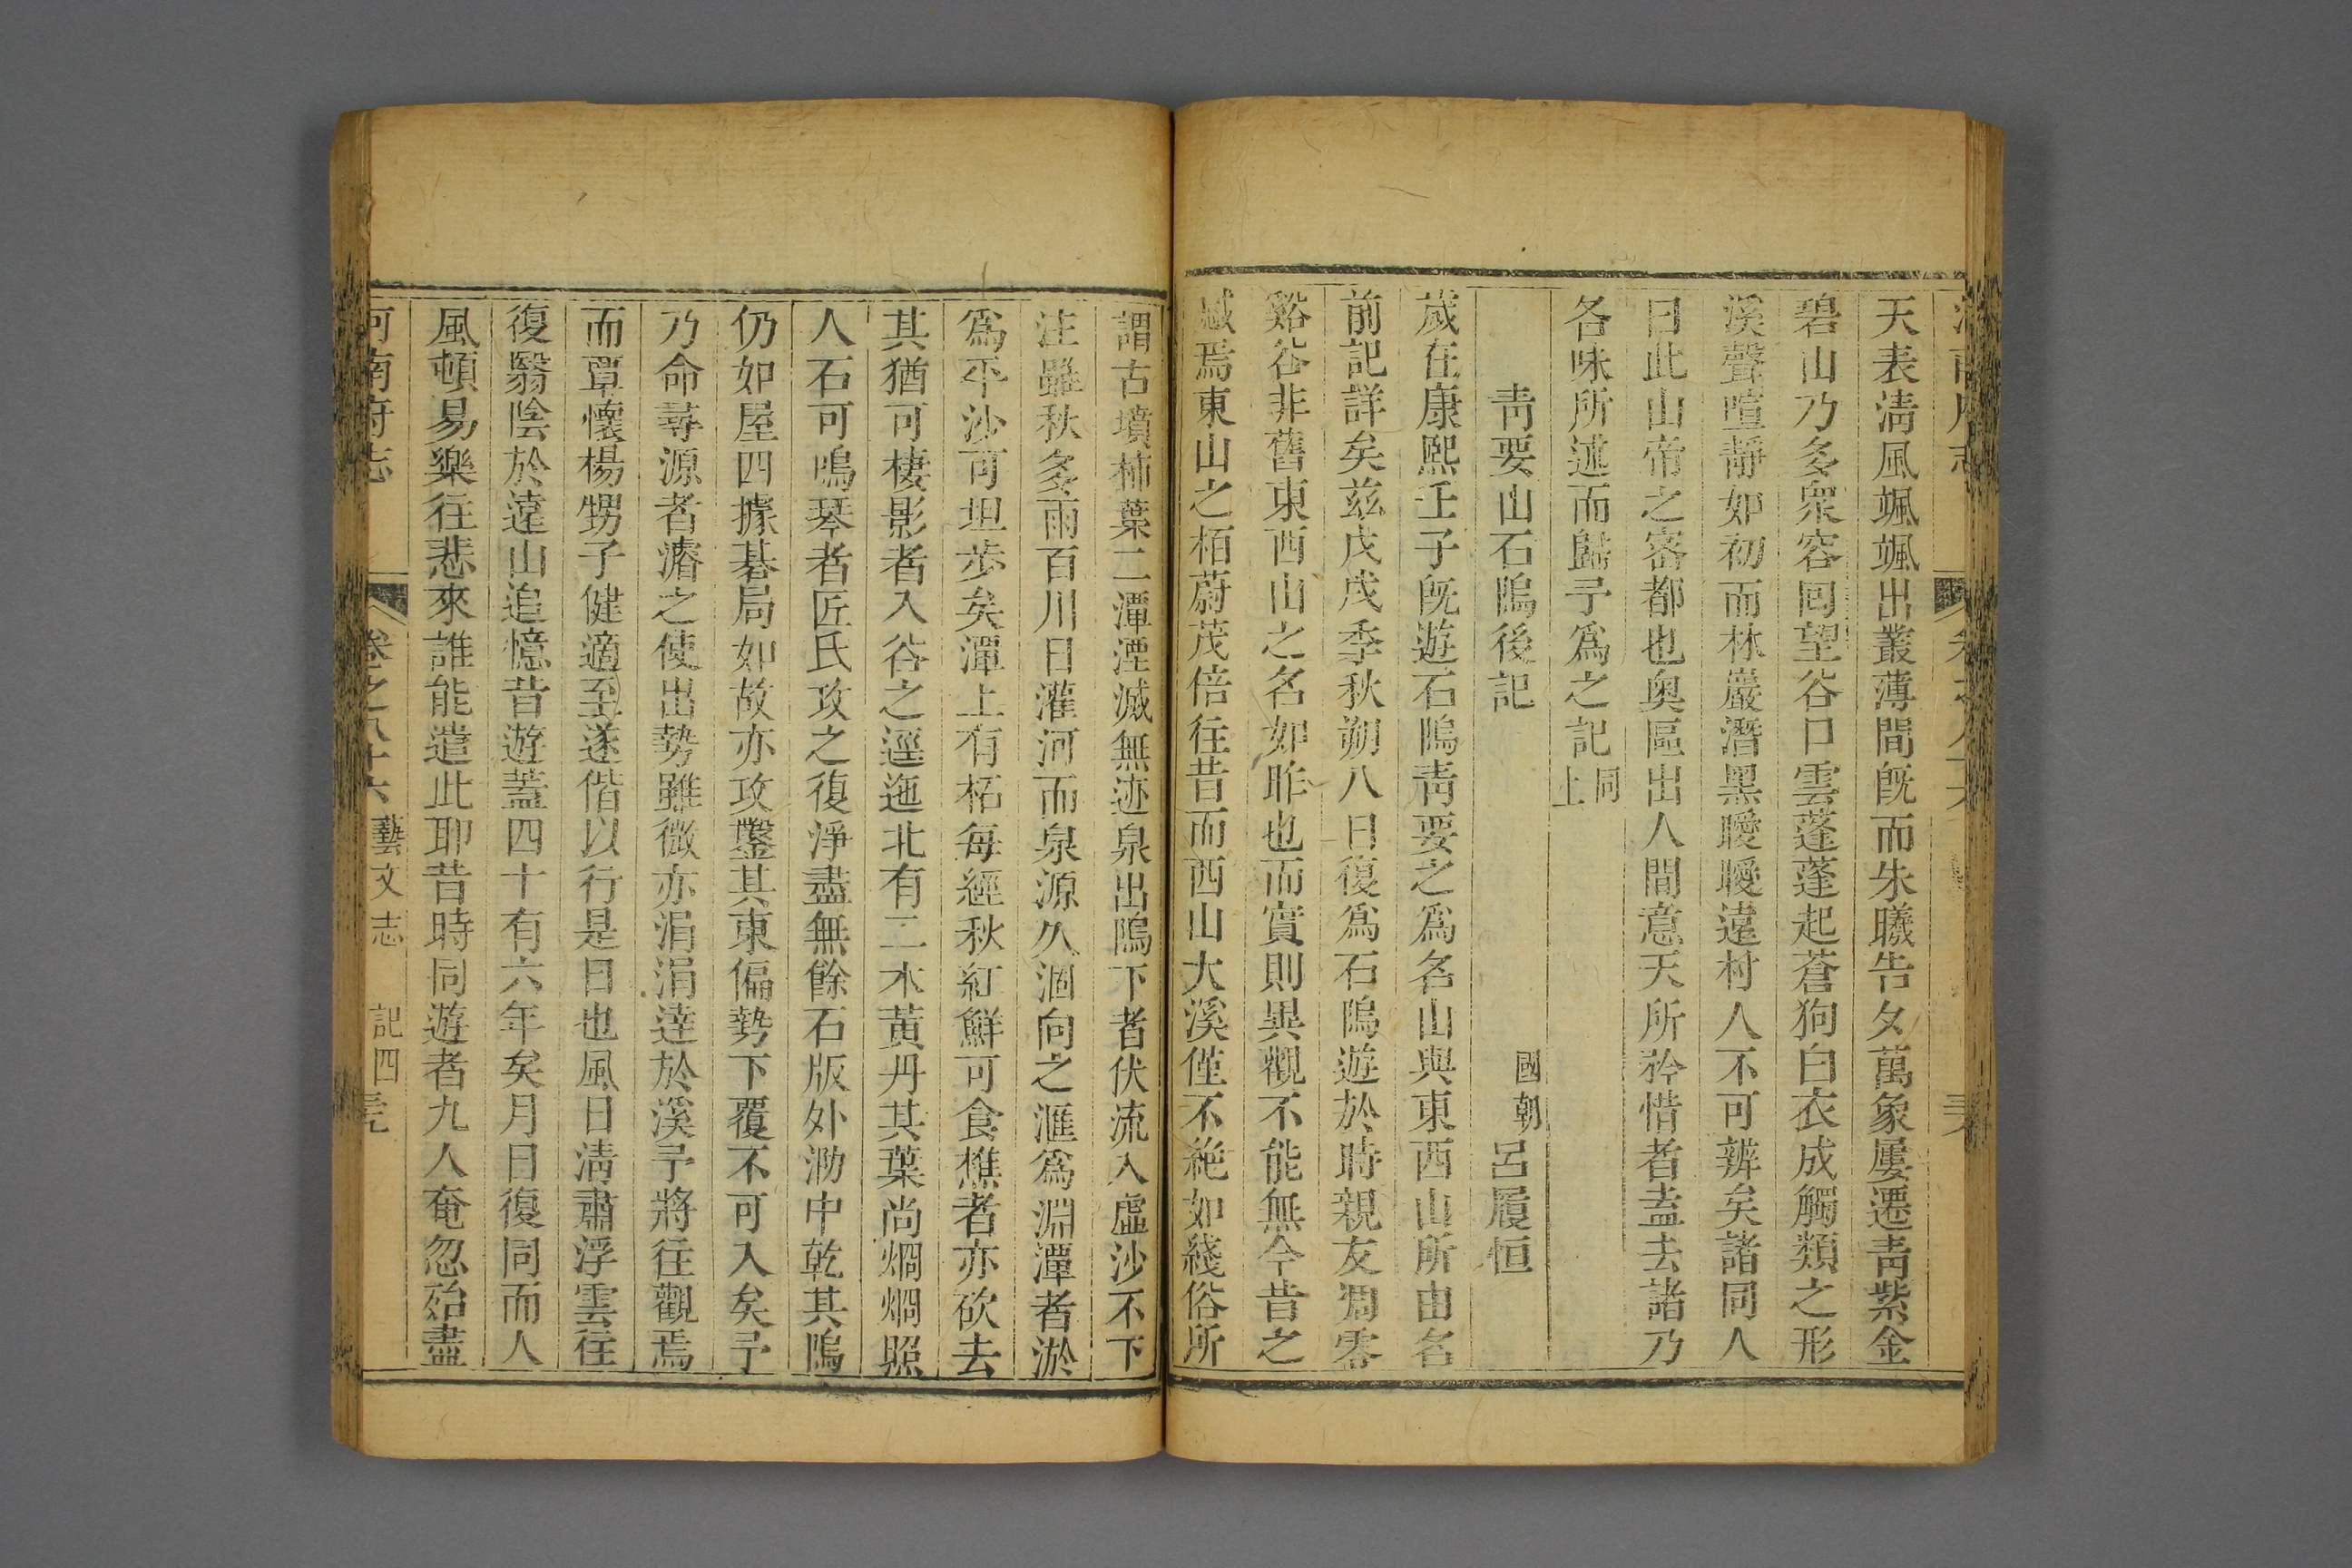 天表淸風颯颯出叢薄間旣而朱曦告夕萬象屢遷靑紫金
碧山乃多衆容回望谷口雲蓬蓬起蒼狗白衣成觸類之形
溪聲喧靜如初而林巖潛黑曖曖遠村人不可辨矣諸同人
曰此山帝之密都也奥區出人間意天所矜惜者盍去諸乃
各味所述而歸予爲之記同上
靑要山石隖後記 國朝呂履恒
歲在康熙壬子旣遊石隖靑要之爲名山與東西山所由名
前記詳矣茲戊戌季秋朔八日復爲石隖遊於時親友凋零
谿谷非舊東西山之名如昨也而實則異觀不能無今昔之
感焉東山之栢蔚茂倍往昔而西山大溪僅不絶如綫俗所
謂古墳柿葉二潭湮滅無迹泉出隖下者伏流入虛沙不下
注雖秋多雨百川日灌河而泉源久涸向之滙爲淵潭者淤
爲平沙可坦步矣潭上有柘每經秋紅鮮可食樵者亦砍去
其猶可棲影者入谷之逕迤北有二木黃丹其葉尚烱烱照
人石可鳴琴者匠氏攻之復淨盡無餘石版外泐中乾其隖
仍如屋四據碁局如故亦攻鑿其東偏勢下覆不可入矣予
乃命尋源者濬之使出勢雖微亦涓涓達於溪予將往觀焉
而覃懷楊甥子健適至遂偕以行是日也風日淸肅浮雲往
復翳陰於遠山追憶昔遊蓋四十有六年矣月日復同而人
風頓易樂往悲來誰能遣此耶昔時同遊者九人奄忽殆盡
河南府志 卷之八十六 藝文志 記四